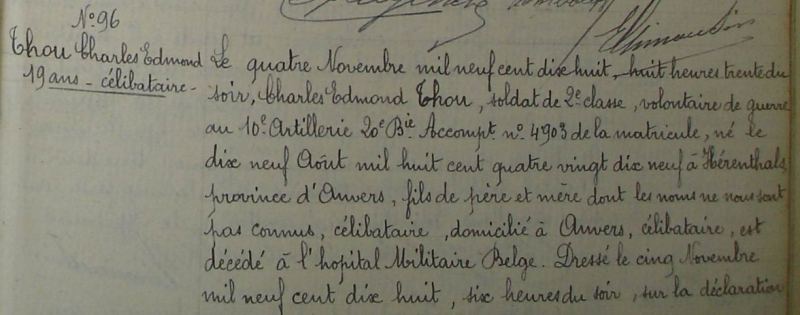 N° 96
Thou Charles Edmond
19 ans - célibataire -
Le quatre Novembre mil neuf cent dix huit, huit heures trente du
soir, Charles Edmond Thou, soldat de 2e classe, volontaire de guerre
au 10e Artillerie 20e Bie Accompt. n° 4903 de la matricule, né le
dix neuf Août mil huit cent quatre vingt dix neuf à Hérenthals,
province d'Anvers, fils de père et mère dont les noms ne nous sont
pas connus, célibataire, domicilié à Anvers, célibataire, est
décédé à l'hopital Militaire Belge. Dressé le cinq Novembre
mil neuf cent dix huit, six heures du soir, sur la déclaration